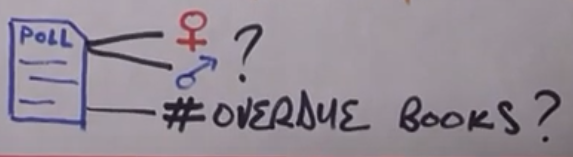 POLL
♀
♂ ?
# OVERDUE BOOKS?